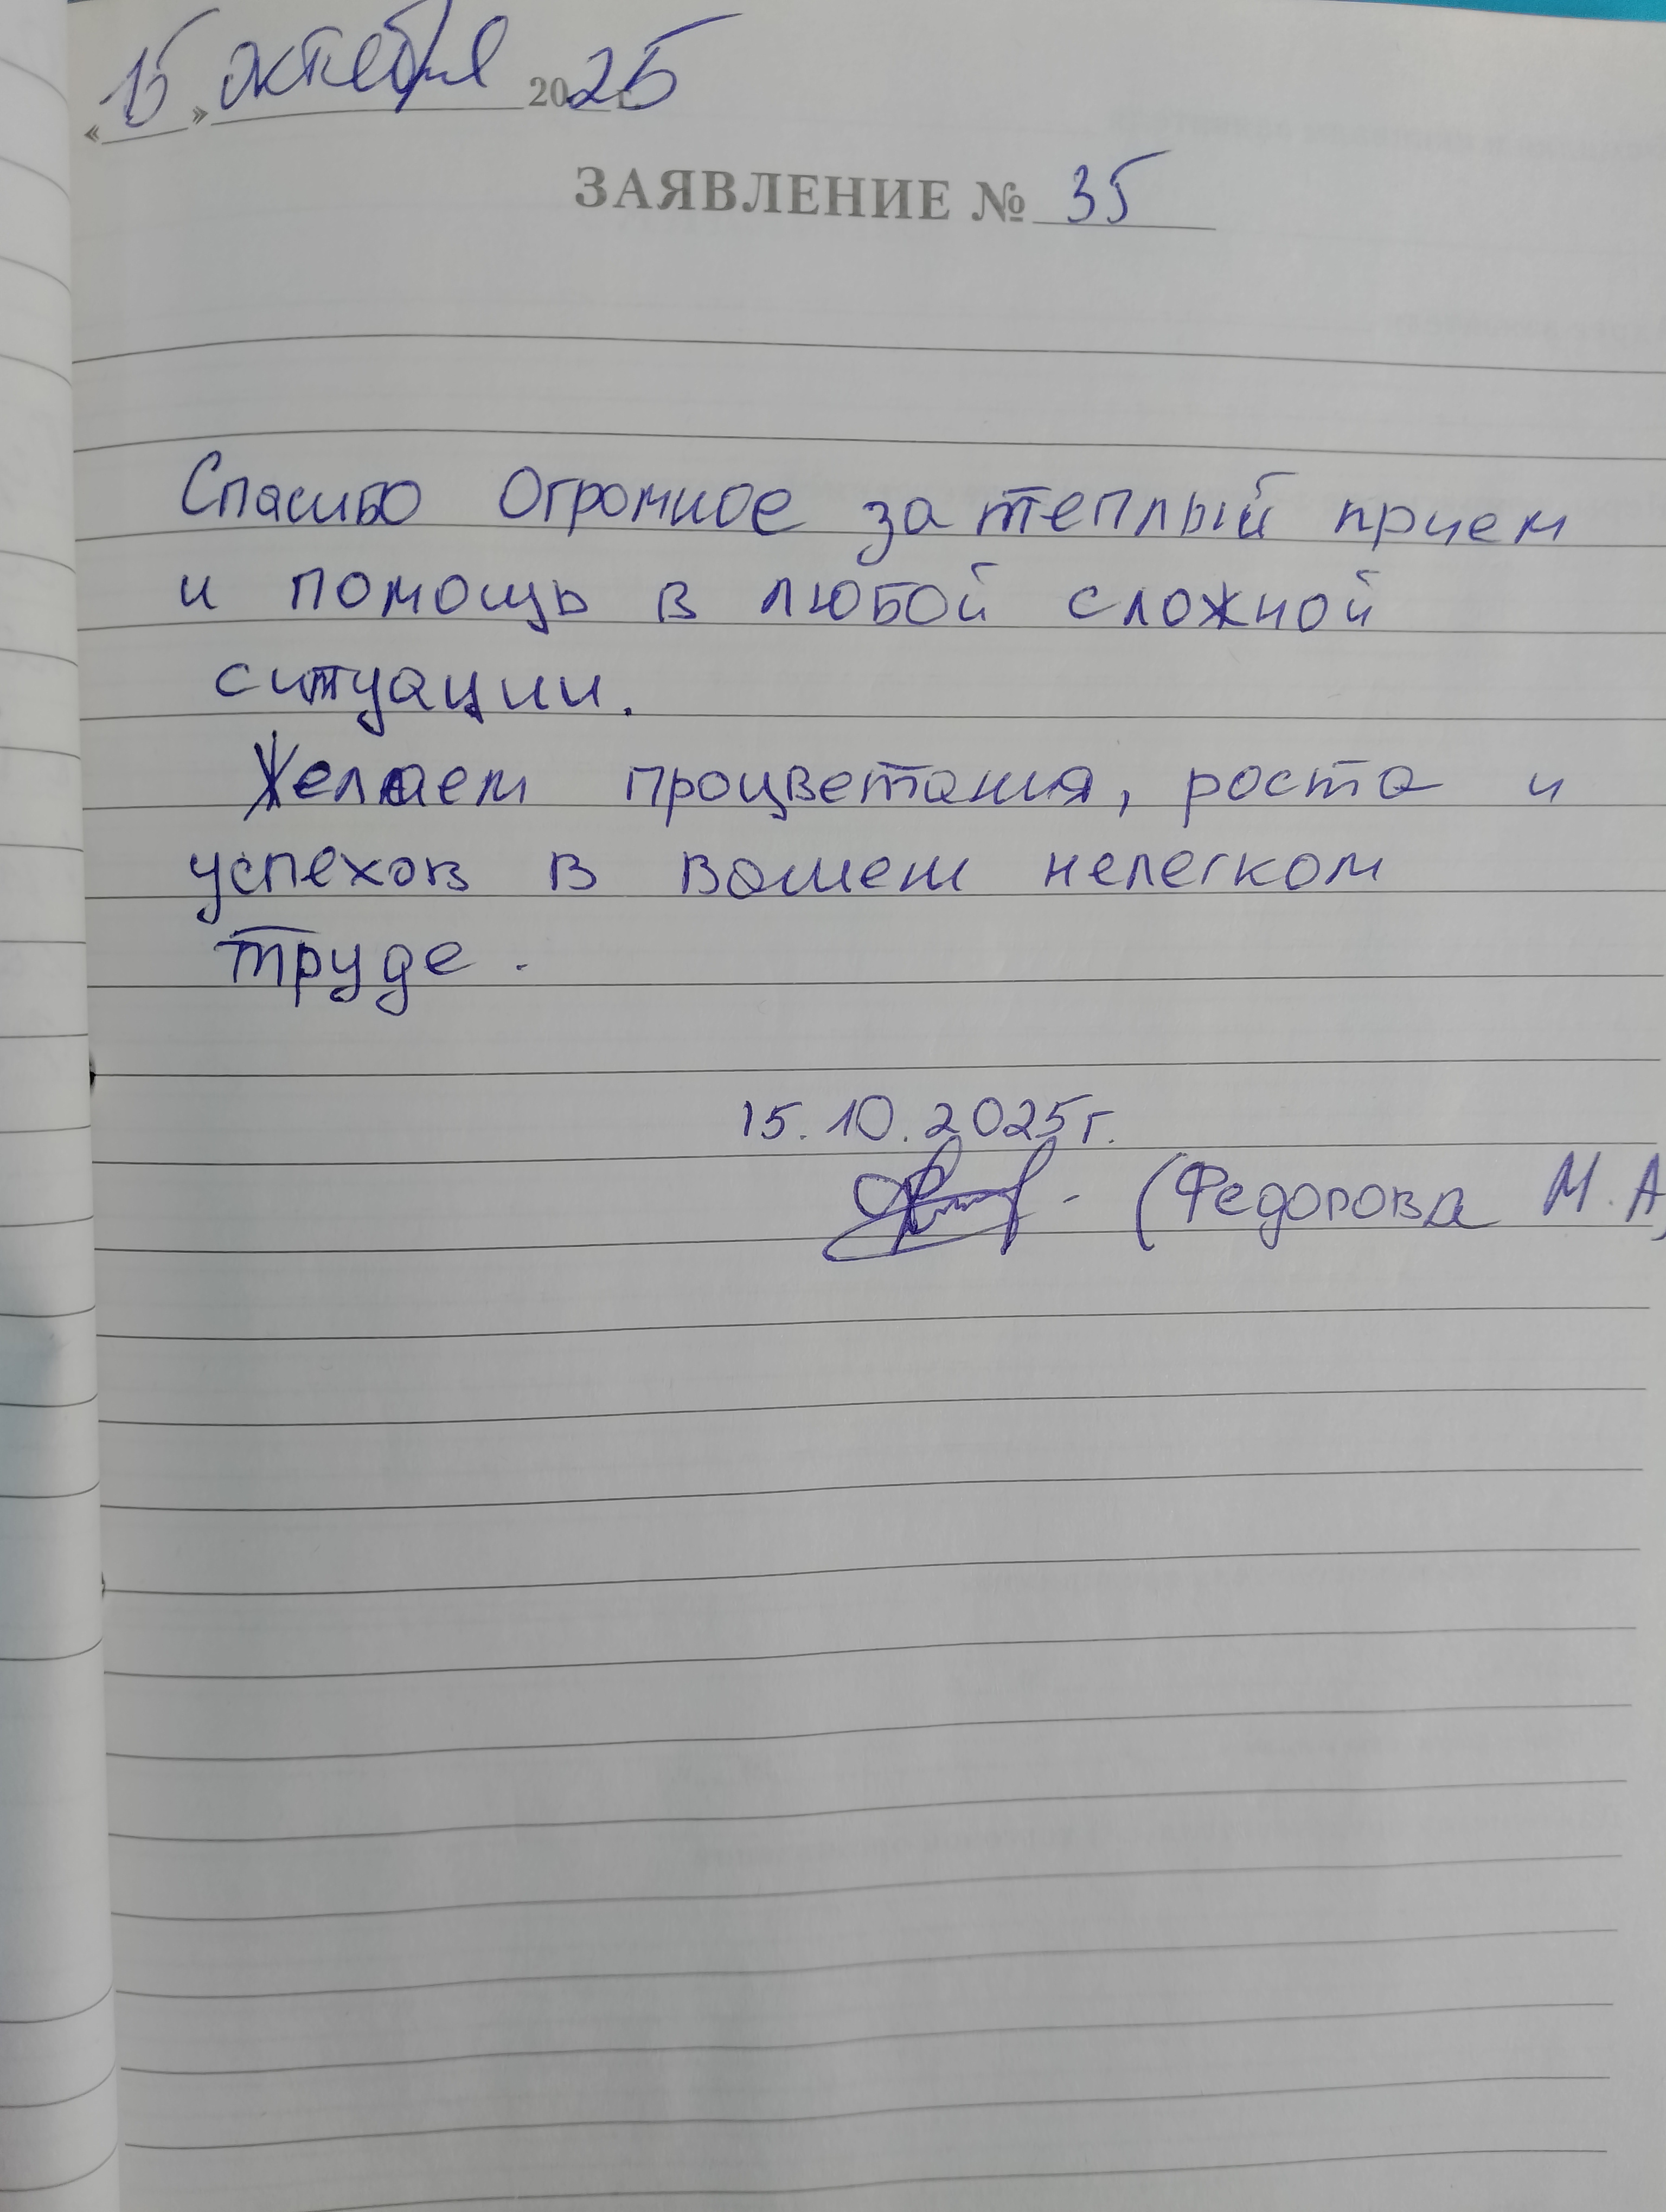 «15» октября 2025
ЗАЯВЛЕНИЕ № 35
Спасибо Огромное за теплый прием
и помощь в любой сложной
ситуации.
Желаем процветания, роста и
успехов в вашем нелегком
труде.
15.10.2025г.
- (Федорова М.А)